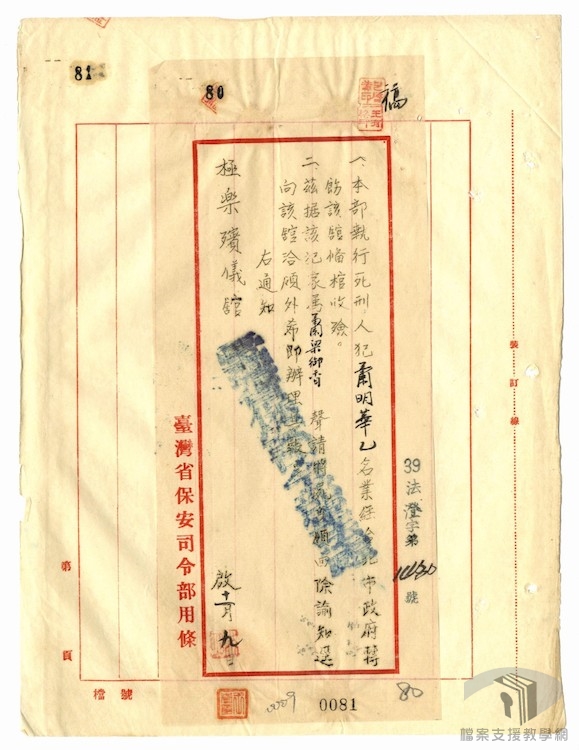 81
80
稿
一、本部執行死刑人犯蕭明華乙名業經台北市政府轉
飭該舘備棺收殮。
二、茲据該犯家屬蕭梁御香聲請將屍體領回除諭知逕
向該舘洽領外希即辦理
右通知
極樂殯儀舘
啟 十一月九日
39法澄字第 號
臺灣省保安司令部用條
裝訂線
第 頁
檔 號
0009
0081
80
檔案支援教學網